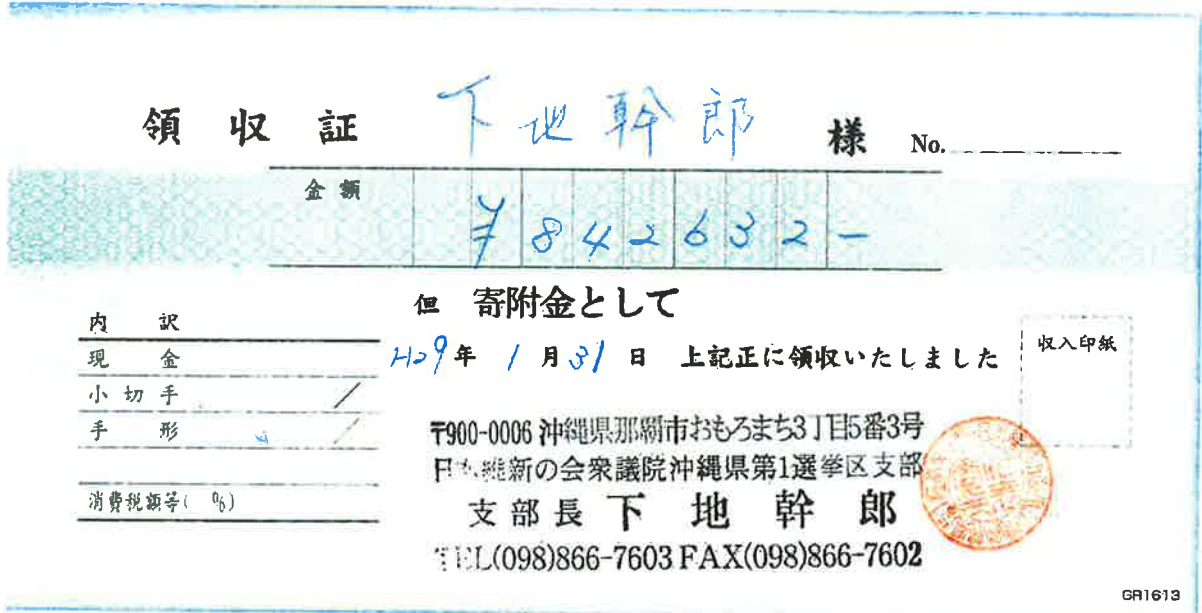 領収証 下地幹郎 様 No.
金額 ¥842632-
但 寄附金として
内訳
現金
H29年1月31日 上記正に領収いたしました
収入印紙
小切手
手形
〒900-0006 沖縄県那覇市おもろまち3丁目5番3号
日本維新の会衆議院沖縄県第1選挙区支部
消費税額等( %)
支部長 下地幹郎
TEL(098)866-7603 FAX(098)866-7602
GR1613